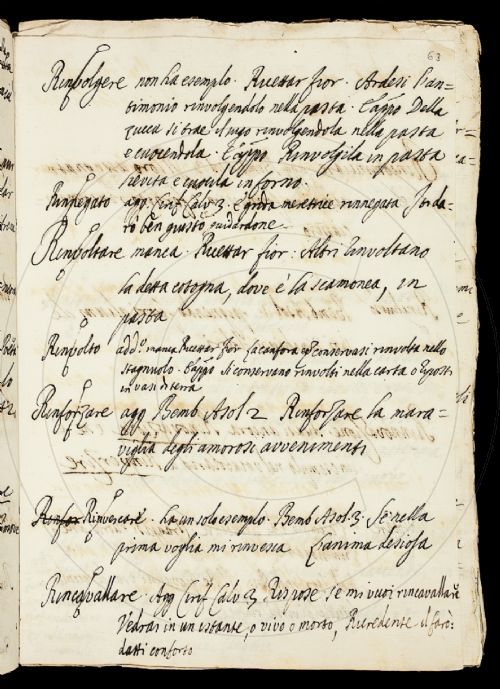 63
Rinvolgere non ha esempio. Ricettar fior. Ardesi l'an=
timonio rinvolgendolo nella pasta. E appo Della
zucca si trae il sugo rinvolgendola nella pasta
e cuocendola. E appo Rinvolgila in pasta
lievita e cuocila in forno.
Rinnegato agg. Cirif Calv 3. E grida meretrice rinnegata Io ti da=
rò ben giusto guidardone
Rinvoltare manca. Ricettar fior: Altri Involtano
la detta cotogna, dove è la scamonea, in
pasta
Rinvolto add.º manca Ricettar fior La canfora conservasi rinvolta nello
stagnuolo. E appo Si conservano rinvolti nella carta o riposti
in vasi di terra
Rinforzare agg Bemb Asol 2 Rinforzare la mara=
viglia degli amorosi avvenimenti
Rinfor Rinvescare ha un solo esempio. Bemb Asol. 3. Se nella
prima voglia mi rinvesca L'anima desiosa
Rincavallare Agg Cirif Calv 3 Rispose se mi vuoi rincavallare
Vedrai in un istante, o vivo o morto, Ricredente il farò:
datti conforto